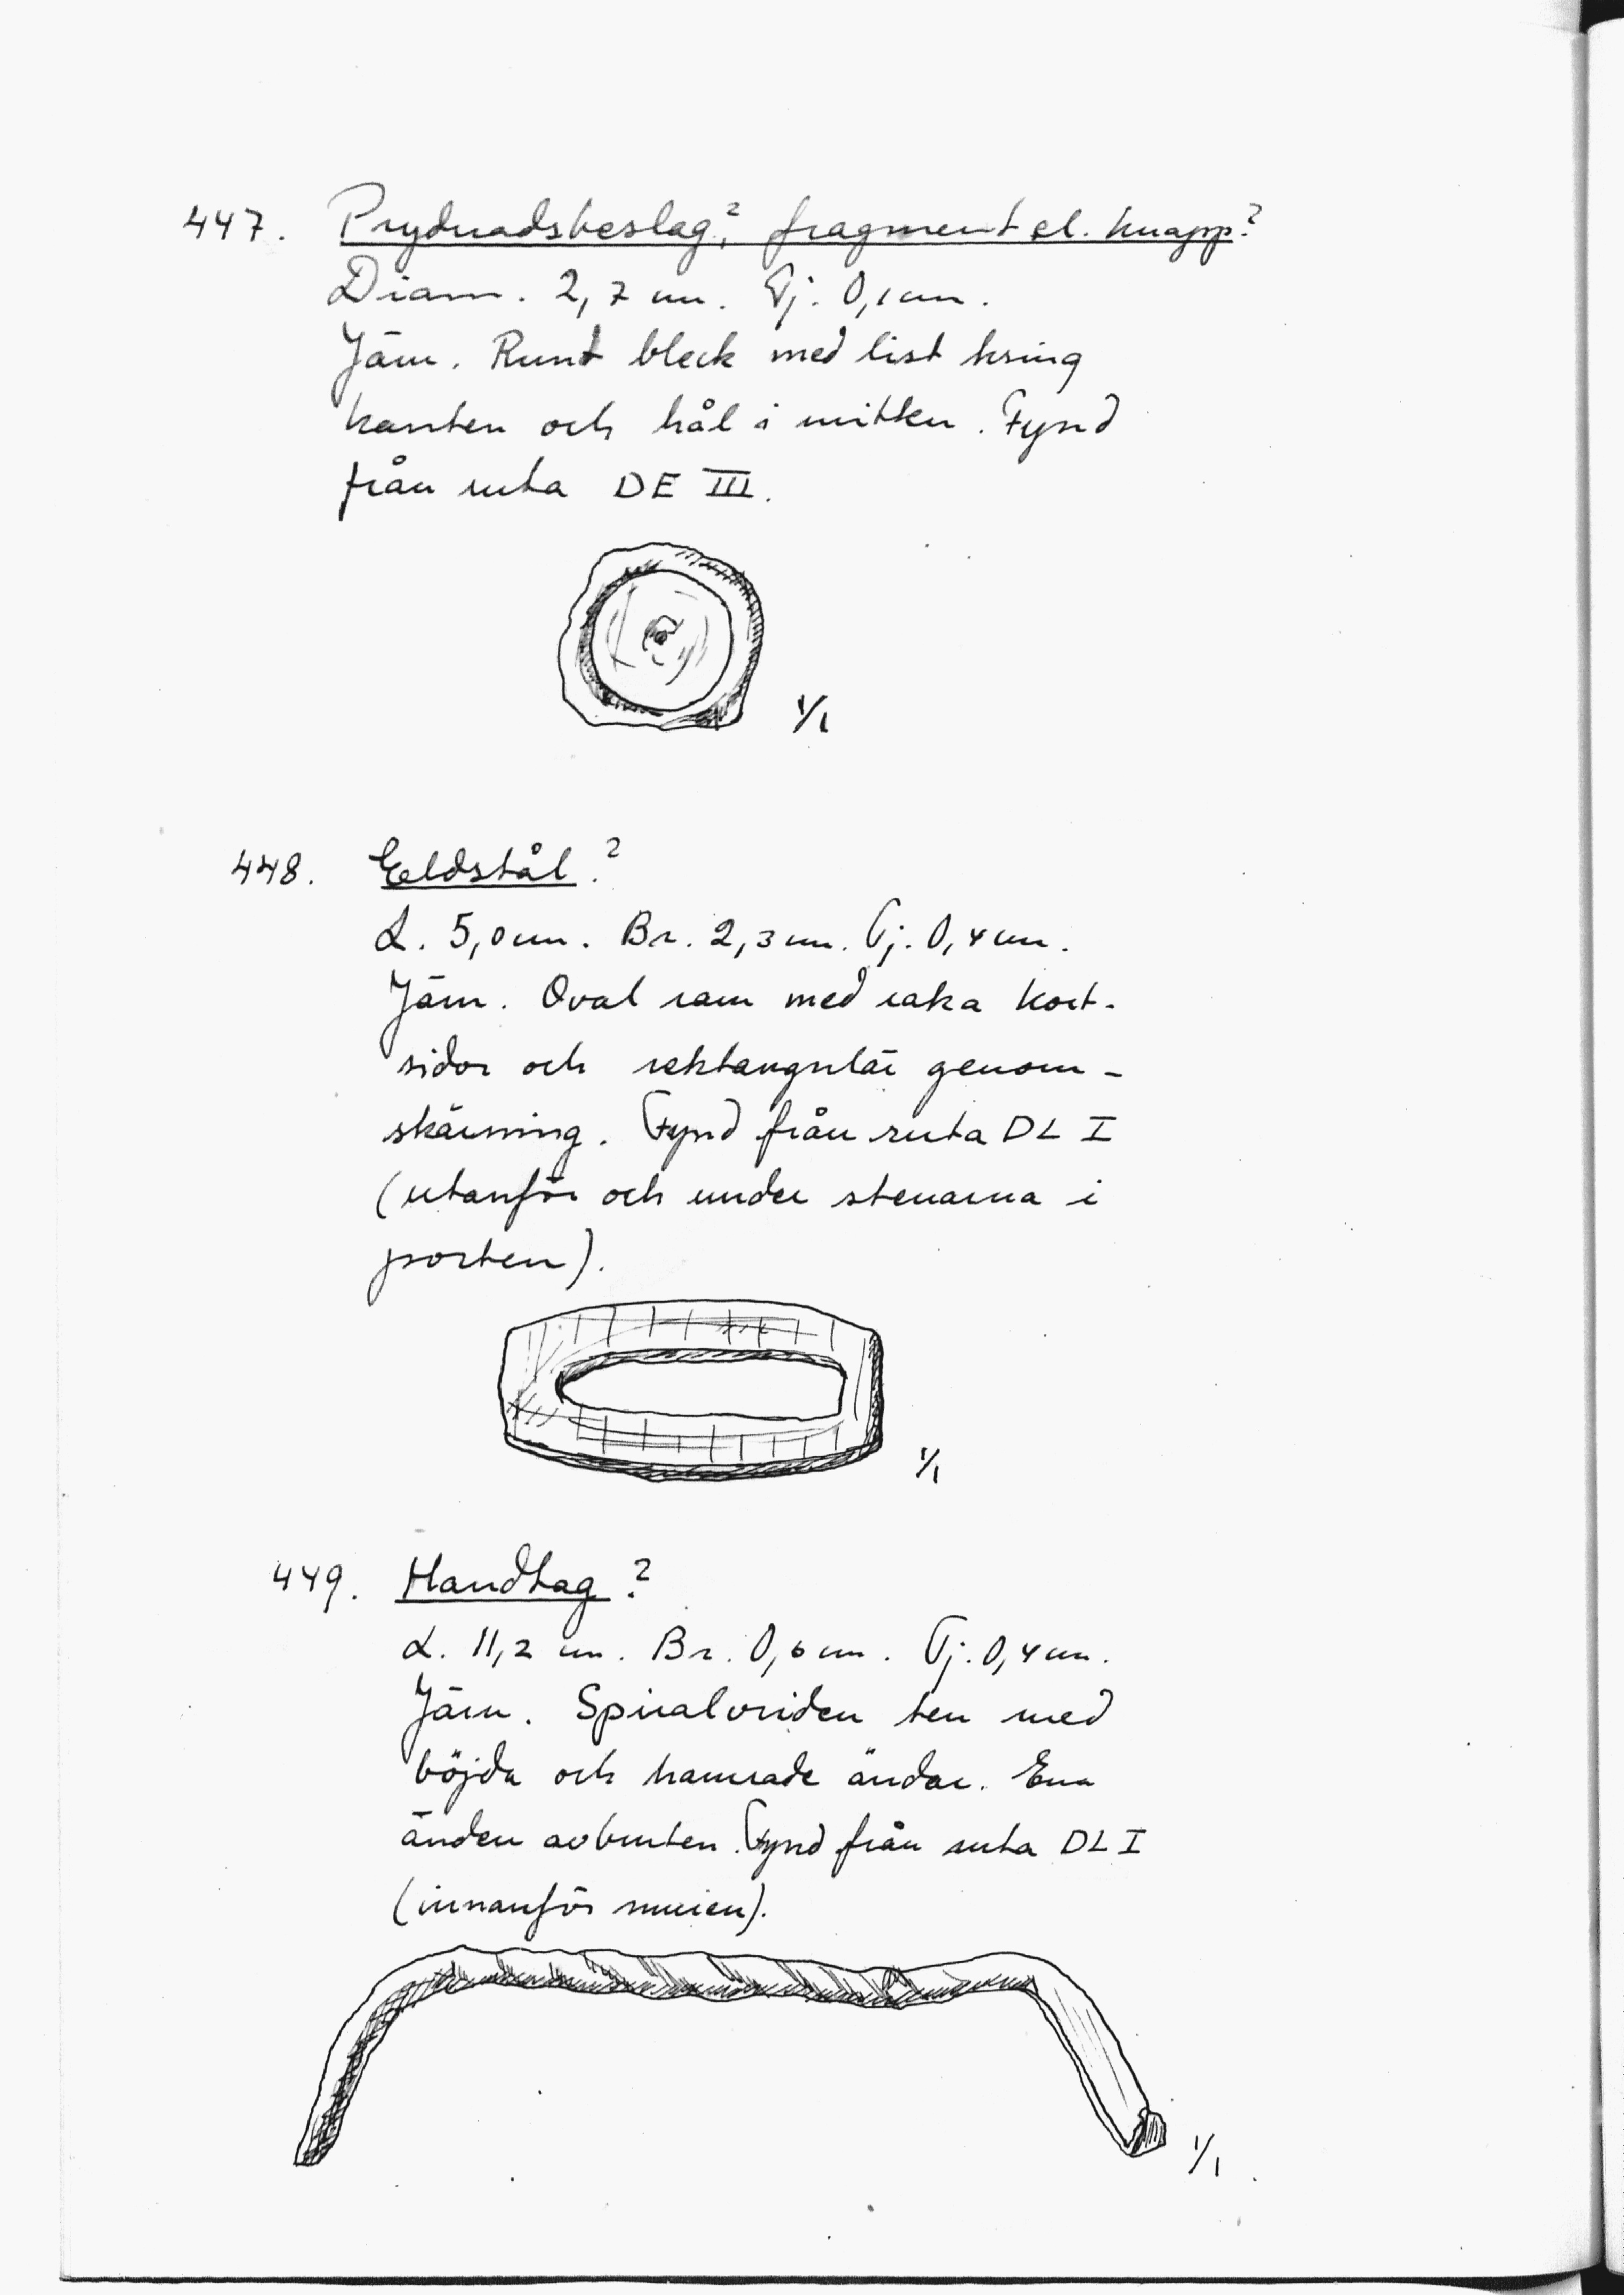 447. Prydnadsbeslag?, fragment el. knapp?
Diam. 2,7 cm. Tj. 0,1 cm.
Järn. Runt bleck med list kring
kanten och hål i mitten. Fynd
från ruta DE III.
1/1
448. Eldstål?
L. 5,0 cm. Br. 2,3 cm. Tj. 0,4 cm.
Järn. Oval ram med raka kort-
sidor och rektangulär genom-
skärning. Fynd från ruta DL I
(utanför och under stenarna i
porten).
1/1
449. Handtag?
L. 11,2 cm. Br. 0,6 cm. Tj. 0,4 cm.
Järn. Spiralvriden ten med
böjda och hamrade ändar. Ena
änden avbruten. Fynd från ruta DL I
(innanför muren).
1/1